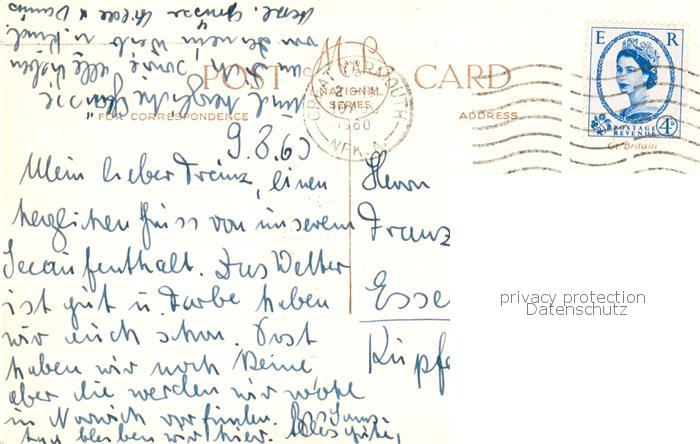 POST CARD
NATIONAL
SERIES
GREAT YARMOUTH
1960
NFK. A.
E R
POSTAGE
REVENUE 4D
Gt. Britain
FOR CORRESPONDENCE
ADDRESS
9.8.60
Mein lieber Franz, einen
herzlichen Gruss von unserem
Seeaufenthalt. Das Wetter
ist gut u. Farbe haben
wir auch schon. Post
haben wir noch keine
aber die werden wir wohl
in Norwich vorfinden. Bis Sams-
tag bleiben wir hier. Alles gute,
und herzliche Grüsse
an Dich, sowie alle lieben
von Deinem Weib u. Kind.
Herzl. Grüsse Hilde u.
Herrn
Franz
Esse
Kupfe
privacy protection
Datenschutz